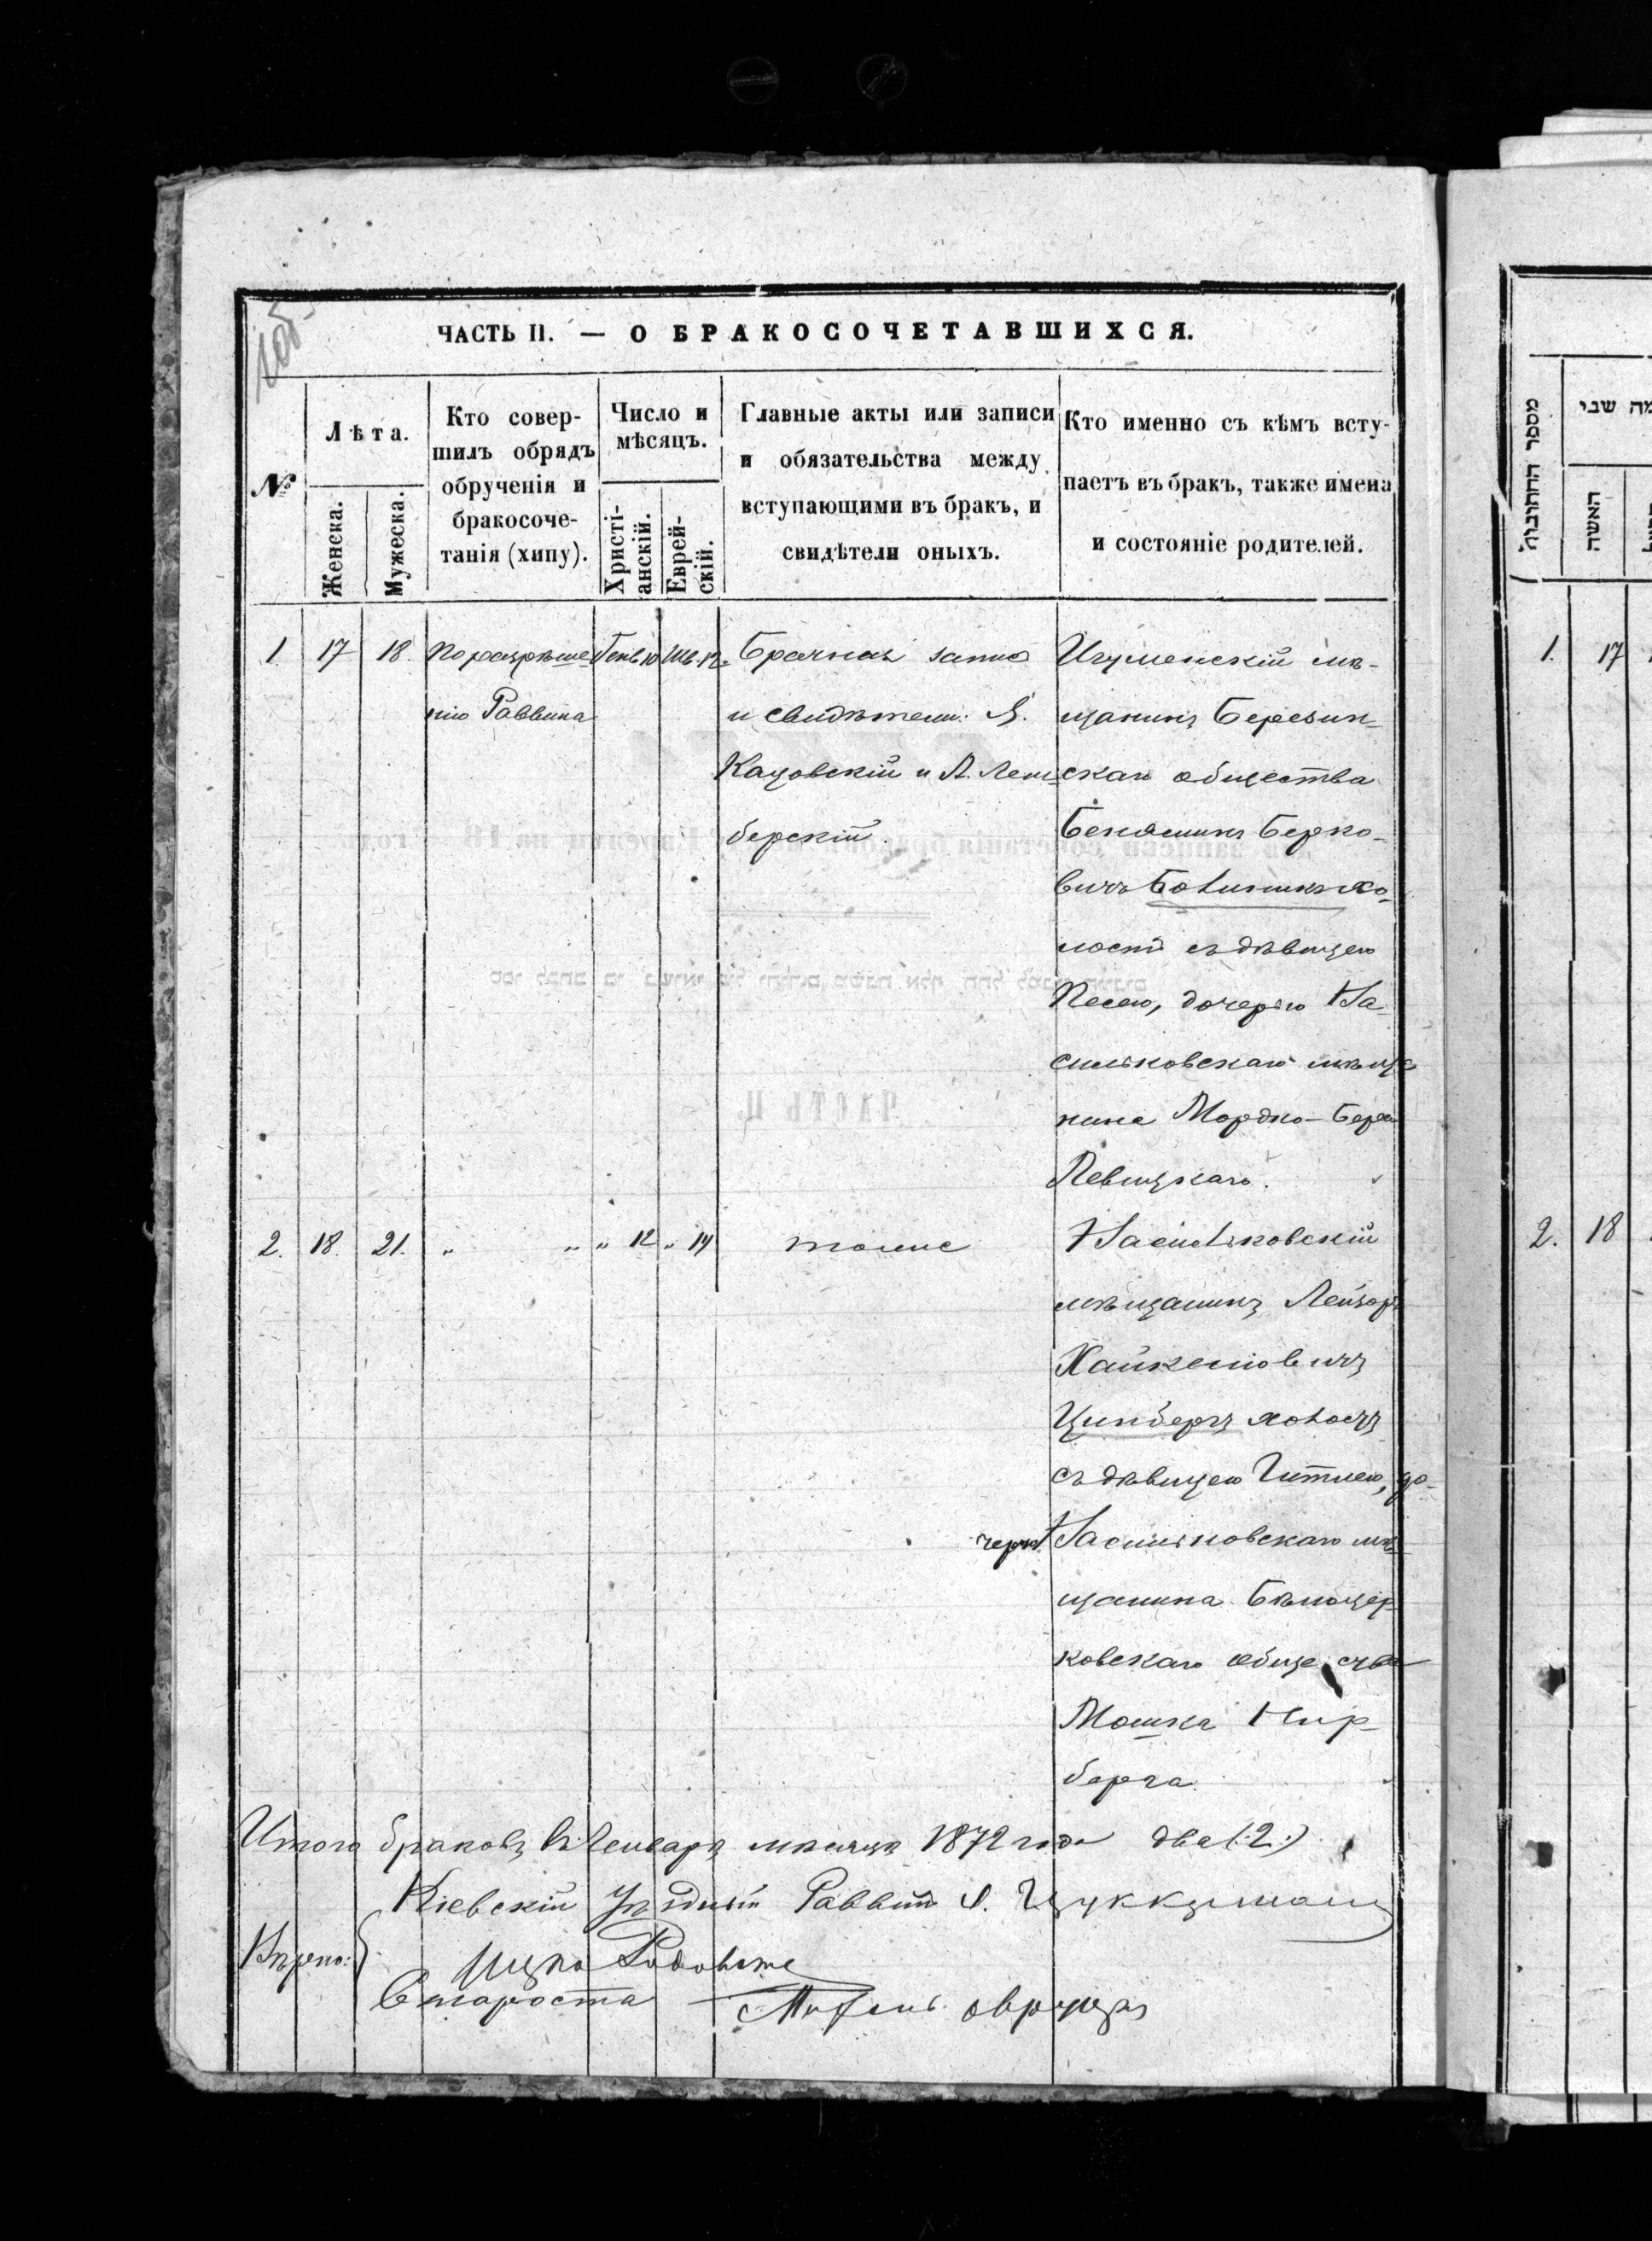 ЧАСТЬ II. — О БРАКОСОЧЕТАВШИХСЯ.
№
Лѣта.
Женска.
Мужеска.
Кто совер-
шилъ обрядъ
обрученія и
бракосоче-
танія (хипу).
Число и
мѣсяцъ.
Христі-
анскій.
Еврей-
скій.
Главные акты или записи
и обязательства между
вступающими въ бракъ, и
свидѣтели оныхъ.
Кто именно съ кѣмъ всту-
паетъ въ бракъ, также имена
и состояніе родителей.
1. 17 18. По разрѣше- Генв. 10 Шв. 12.
нію Раввина
Брачная запись
и свидѣтели: Я.
Кацовскій и Л. Лем-
берскій.
Игуменскій мѣ-
щанинъ Березин-
скаго общества
Беняминъ Берко-
вичъ хо-
лостъ съ дѣвицею
Песею, дочерью Ва-
сильковскаго мѣща
нина Мордко-Бера
Левицкаго.
2. 18. 21. „ „ „ 12 „ 14 тоже
Васильковскій
мѣщанинъ Лейзоръ
Хаикелювичъ
Цинбергъ холостъ
съ дѣвицею Гитлею, до-
черью Васильковскаго мѣ-
щанина Бѣлоцер-
ковскаго общества
Мошка Нир-
берга.
Итого браковъ въ Генварѣ мѣсяцѣ 1872 года два (:2:)
Кіевскій Уѣздный Раввинъ Цуккерманъ
Вѣрно:
Ицко
Староста
מספר החתונה
מה שני
האשה
1. 17
2. 18
ЧАСТЬ II.